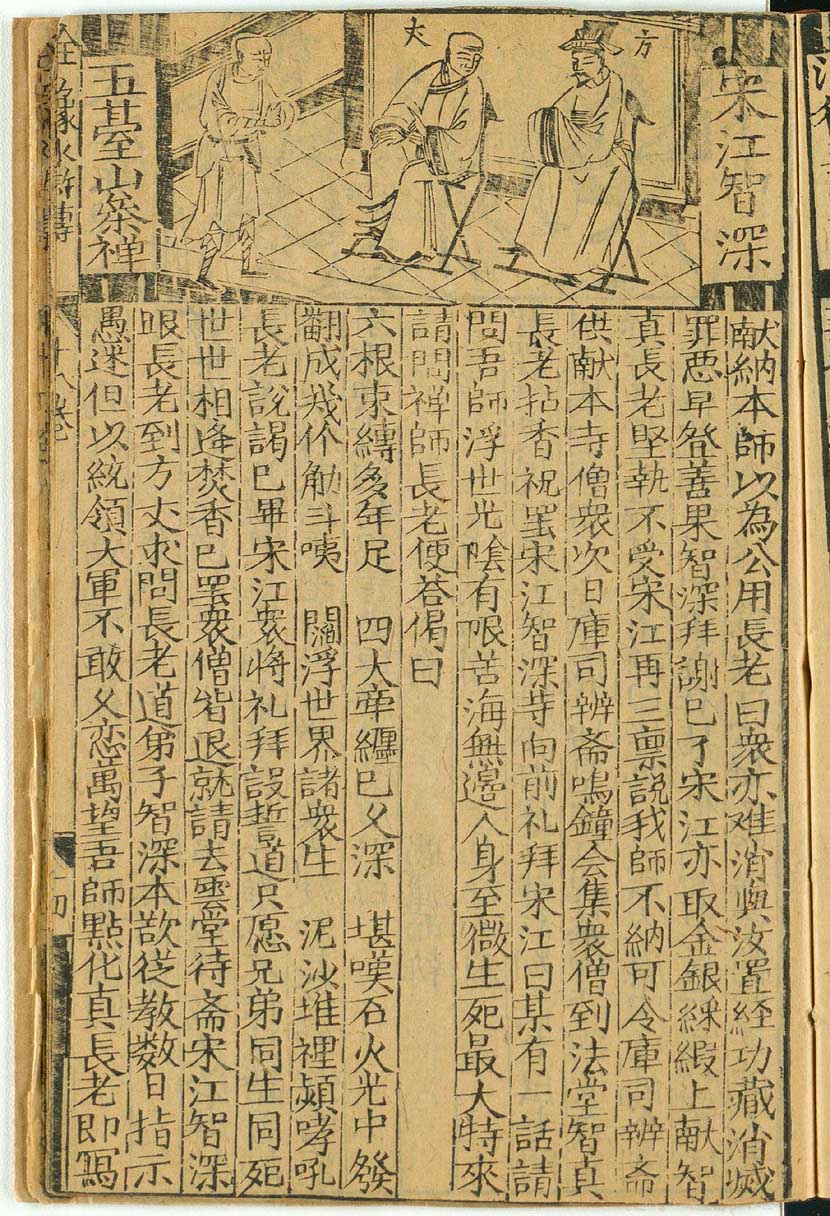 宋江智深
方丈
五臺山參禅
献納本師以為公用長老曰衆亦难消與汝置経功藏消滅
罪悪早登善果智深拜謝已了宋江亦取金銀綵緞上献智
真長老堅執不受宋江再三禀說我師不納可令庫司辨斋
供献本寺僧衆次日庫司辨斋鳴鐘会集衆僧到法堂智真
長老拈香祝罢宋江智深等向前礼拜宋江曰某有一話請
問吾師浮世光陰有限苦海無邊人身至微生死最大特來
請問禅師長老便荅偈曰
六根束縛多年足　四大牽纒已久深　堪嘆石火光中發
翻成幾个觔斗咦　閻浮世界諸衆生　泥沙堆裡頻哮吼
長老說謁已畢宋江衆將礼拜設誓道只愿兄弟同生同死
世世相逢焚香已罢衆僧皆退就請去雲堂待斋宋江智深
眼長老到方丈求問長老道弟子智深本欲從教數日指示
愚迷但以統領大軍不敢久恋萬望吾師點化真長老即寫
水滸傳